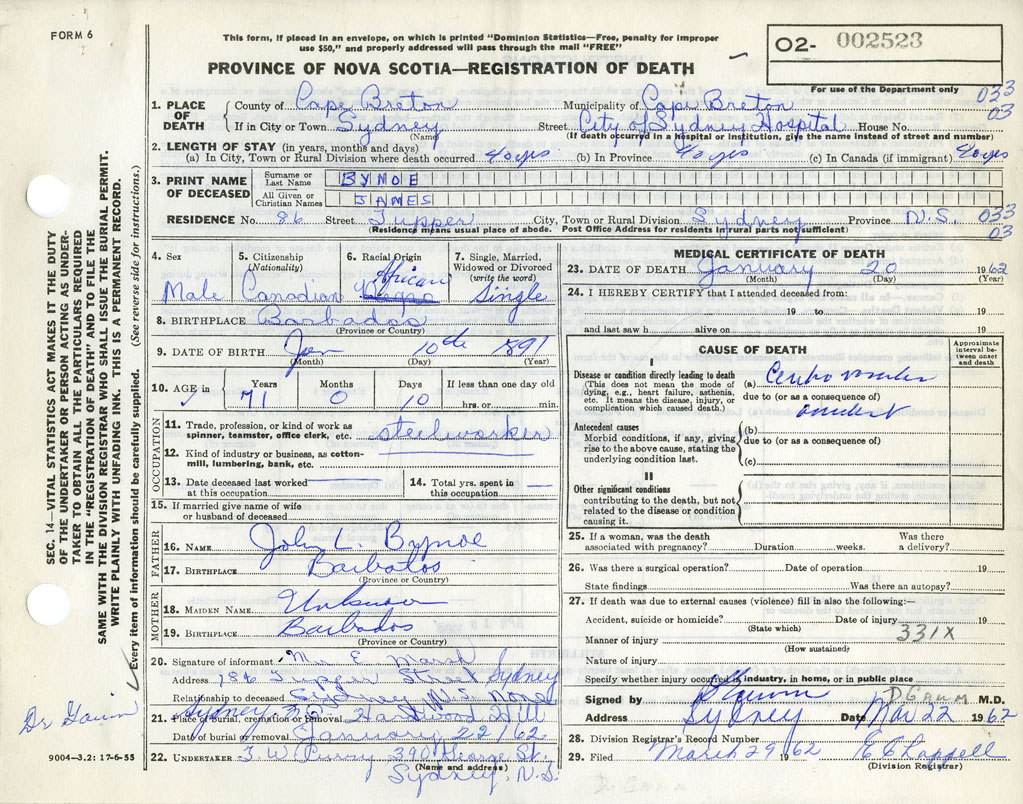 FORM 6
This form, if placed in an envelope, on which is printed "Dominion Statistics—Free, penalty for improper
use $50," and properly addressed will pass through the mail "FREE"
02- 002523
PROVINCE OF NOVA SCOTIA—REGISTRATION OF DEATH
For use of the Department only
033
03
1. PLACE OF DEATH
County of Cape Breton Municipality of Cape Breton
If in City or Town Sydney Street City of Sydney Hospital House No.
(Name) (If death occurred in a Hospital or Institution, give the name instead of street and number)
2. LENGTH OF STAY (in years, months and days)
(a) In City, Town or Rural Division where death occurred 40 yrs (b) In Province 40 yrs (c) In Canada (if immigrant) 40 yrs
3. PRINT NAME OF DECEASED
Surname or Last Name BYNOE
All Given or Christian Names JAMES
RESIDENCE No. 86 Street Tupper City, Town or Rural Division Sydney Province N.S. 033
03
(Residence means usual place of abode. Post Office Address for residents in rural parts not sufficient)
4. Sex
Male
5. Citizenship (Nationality)
Canadian
6. Racial Origin
African
Negro
7. Single, Married, Widowed or Divorced (write the word)
Single
8. BIRTHPLACE Barbados
(Province or Country)
9. DATE OF BIRTH Jan 10th 1891
(Month) (Day) (Year)
10. AGE in Years Months Days If less than one day old
71 0 10 hrs. or min.
OCCUPATION
11. Trade, profession, or kind of work as spinner, teamster, office clerk, etc. steelworker
12. Kind of industry or business, as cotton-mill, lumbering, bank, etc.
13. Date deceased last worked at this occupation
14. Total yrs. spent in this occupation
15. If married give name of wife or husband of deceased
FATHER
16. NAME John L. Bynoe
17. BIRTHPLACE Barbados
(Province or Country)
MOTHER
18. MAIDEN NAME Unknown
19. BIRTHPLACE Barbados
(Province or Country)
20. Signature of informant Mr E Marsh
Address 186 Tupper Street Sydney
Relationship to deceased Sydney N.S. None
21. Place of burial, cremation or removal Sydney, Hardwood Hill
Date of burial or removal January 22/62
22. UNDERTAKER T. W. Curry 390 George St.
(Name and address)
Sydney, N.S.
MEDICAL CERTIFICATE OF DEATH
23. DATE OF DEATH January 20 1962
(Month) (Day) (Year)
24. I HEREBY CERTIFY that I attended deceased from:
19 to 19
and last saw h alive on 19
CAUSE OF DEATH
Approximate interval between onset and death
I
Disease or condition directly leading to death
(This does not mean the mode of dying, e.g., heart failure, asthenia, etc. It means the disease, injury, or complication which caused death.)
(a) Cerebro vascular
due to (or as a consequence of)
accident
Antecedent causes
Morbid conditions, if any, giving rise to the above cause, stating the underlying condition last.
(b)
due to (or as a consequence of)
(c)
II
Other significant conditions
contributing to the death, but not related to the disease or condition causing it.
25. If a woman, was the death associated with pregnancy? Duration weeks. Was there a delivery?
26. Was there a surgical operation? Date of operation 19
State findings Was there an autopsy?
27. If death was due to external causes (violence) fill in also the following:—
Accident, suicide or homicide? Date of injury 19
(State which)
331X
Manner of injury
(How sustained)
Nature of injury
Specify whether injury occurred in industry, in home, or in public place
Signed by D Gaum M.D.
Address Sydney Date Mar 22 1962
28. Division Registrar's Record Number
29. Filed March 29 1962
(Division Registrar)
SEC. 14—VITAL STATISTICS ACT MAKES IT THE DUTY
OF THE UNDERTAKER OR PERSON ACTING AS UNDER-
TAKER TO OBTAIN ALL THE PARTICULARS REQUIRED
IN THE "REGISTRATION OF DEATH" AND TO FILE THE
SAME WITH THE DIVISION REGISTRAR WHO SHALL ISSUE THE BURIAL PERMIT.
WRITE PLAINLY WITH UNFADING INK. THIS IS A PERMANENT RECORD.
Every item of information should be carefully supplied. (See reverse side for instructions.)
Dr Gaum
9004—3.2: 17-6-55